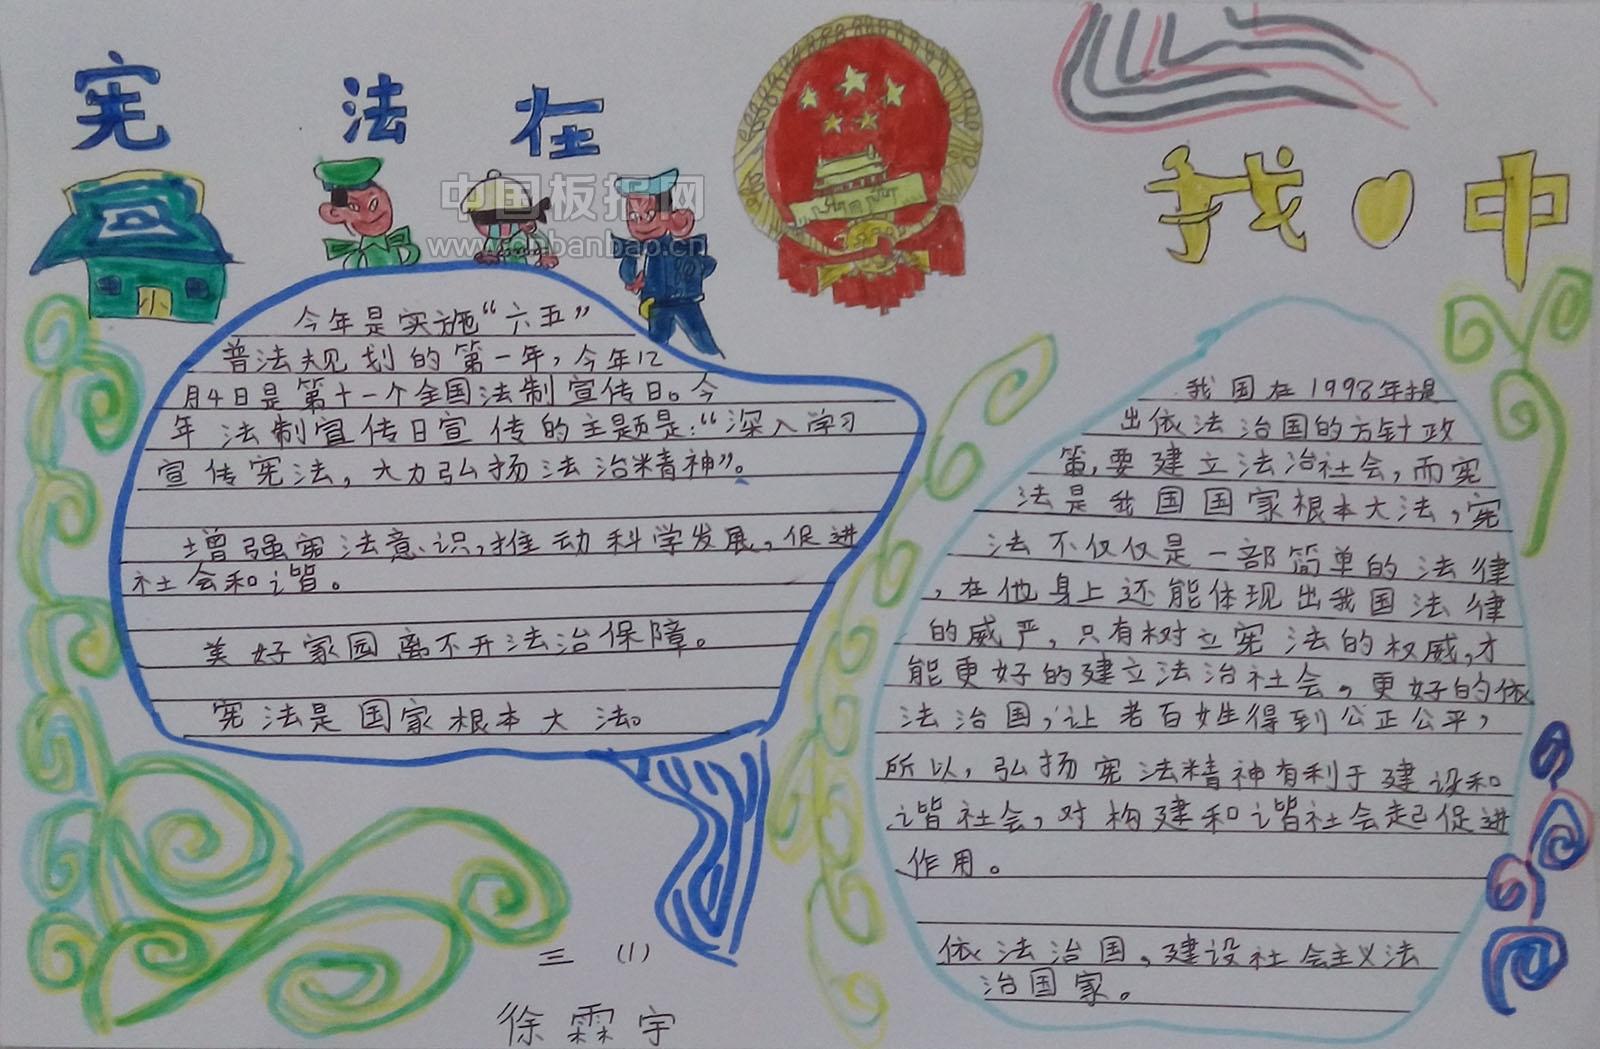 宪法在
我心中
中国板报网
www.cnbanbao.cn
今年是实施“六五”
普法规划的第一年,今年12
月4日是第十一个全国法制宣传日。今
年法制宣传日宣传的主题是:“深入学习
宣传宪法,大力弘扬法治精神”。
增强宪法意识,推动科学发展,促进
社会和谐。
美好家园离不开法治保障。
宪法是国家根本大法。
三(1)
徐霖宇
我国在1998年提
出依法治国的方针政
策,要建立法治社会,而宪
法是我国国家根本大法,宪
法不仅仅是一部简单的法律
,在他身上还能体现出我国法律
的威严,只有树立宪法的权威,才
能更好的建立法治社会。更好的依
法治国,让老百姓得到公正公平,
所以,弘扬宪法精神有利于建设和
谐社会,对构建和谐社会起促进
作用。
依法治国,建设社会主义法
治国家。